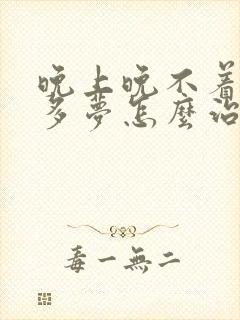 晚上晚不着
多夢怎麼治
毒一無二